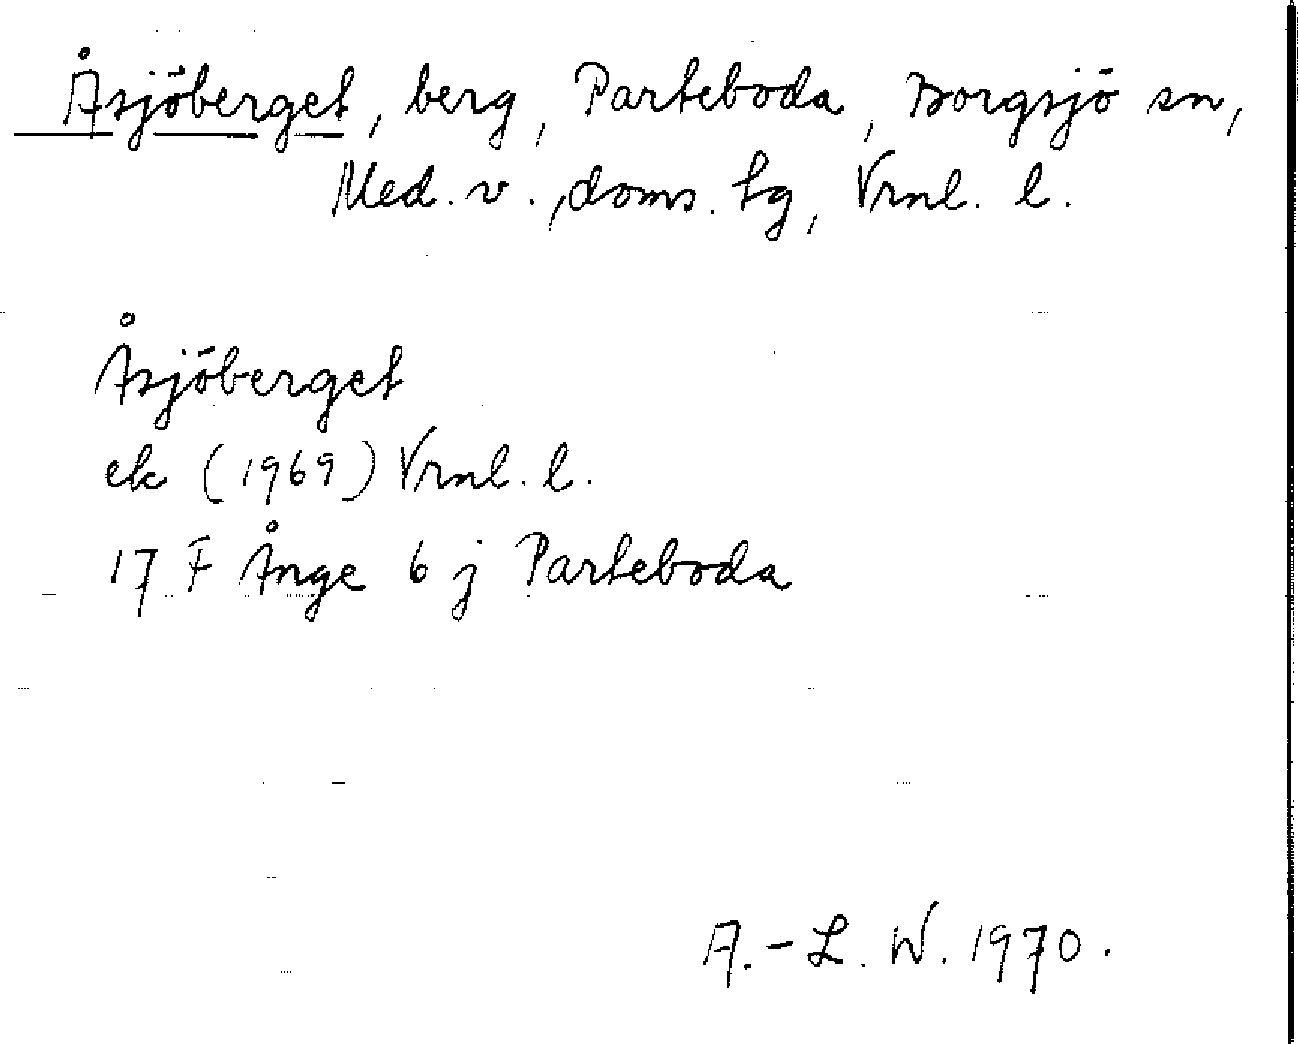 Åsjöberget, berg, Parteboda, Borgsjö sn,
Med. v., doms. tg, Vrnl. l.
Åsjöberget
ek (1969) Vrnl. l.
17 F Ånge 6 j Parteboda
A.-L. W. 1970.